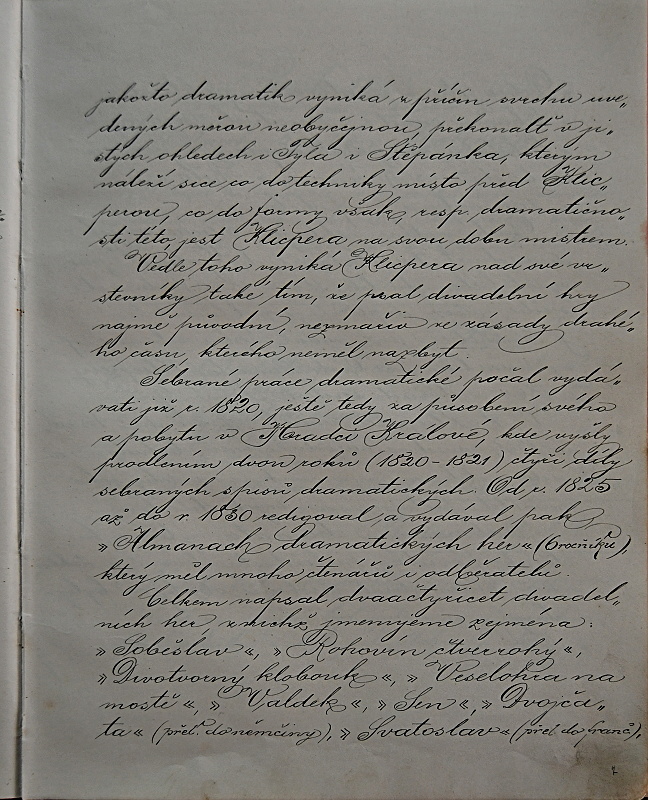 jakožto dramatik vyniká z příčin svrchu uve„
dených měrou neobyčejnou, překonalť v ji„
stých ohledech i Tyla i Štěpánka, kterým
náleží sice co do techniky místo před Klic„
perou, co do formy však, resp. dramatično„
sti této jest Klicpera na svou dobu mistrem.
Vedle toho vyniká Klicpera nad své vr„
stevníky také tím, že psal divadelní hry
najmě původní, nezmařiv ze zásady drahé„
ho času, kterého neměl nazbyt.
Sebrané práce dramatické počal vydá„
vati již r. 1820, ještě tedy za působení svého
a pobytu v Hradci Králové, kde vyšly
prodlením dvou roků (1820-1821) čtyři díly
sebraných spisů dramatických. Od r. 1825
až do r. 1830 redigoval a vydával pak
„Almanach dramatických her“ (6 ročníků),
který měl mnoho čtenářů i odběratelů.
Celkem napsal dvaačtyřicet divadel„
ních her, z nichž jmenujeme zejména:
»Soběslav«, »Rohovín čtverrohý«,
»Divotvorný klobouk«, »Veselohra na
mostě«, »Valdek«, »Sen«, »Dvojča„
ta« (přel. do němčiny), »Svatoslav« (přel. do franc.),